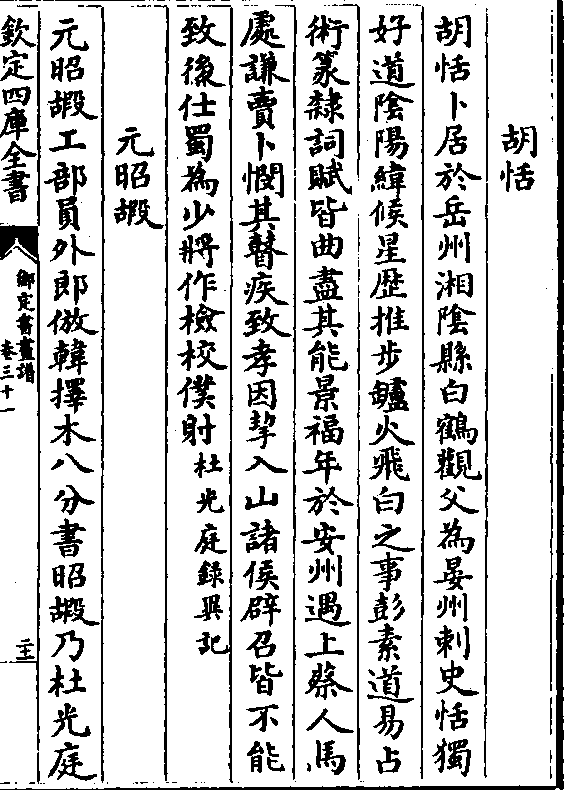 胡恬
胡恬卜居於岳州湘隂縣白鶴觀父為晏州刺史恬獨
好道隂陽緯候星歴推步鑪火飛白之事彭素道易占
術篆隸詞賦皆曲盡其能景福年於安州遇上蔡人馬
處謙賣卜憫其瞽疾致孝因挈入山諸侯辟召皆不能
致後仕蜀為少將作檢校僕射杜光庭錄異記
元昭嘏
元昭嘏工部員外郎倣韓擇木八分書昭嘏乃杜光庭
欽定四庫全書
御定書畫譜
卷三十一
二十二